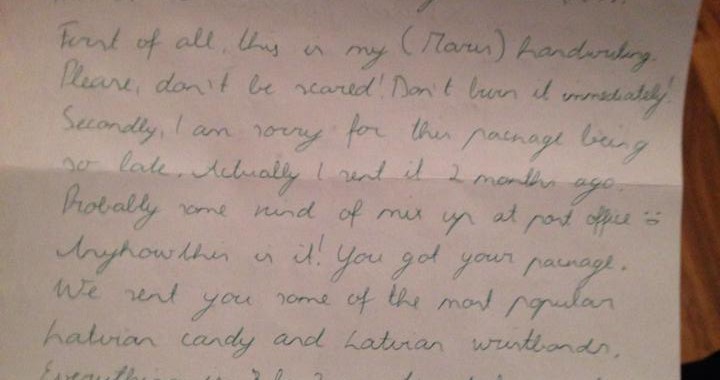 First of all, this is my (Maris) handwriting.
Please, don't be scared! Don't burn it immediately!
Secondly, I am sorry for this package being
so late. Actually I sent it 2 months ago.
Probably some kind of mix up at post office :(
Anyhow this is it! You got your package.
We sent you some of the most popular
Latvian candy and Latvian wristbands.
Everything